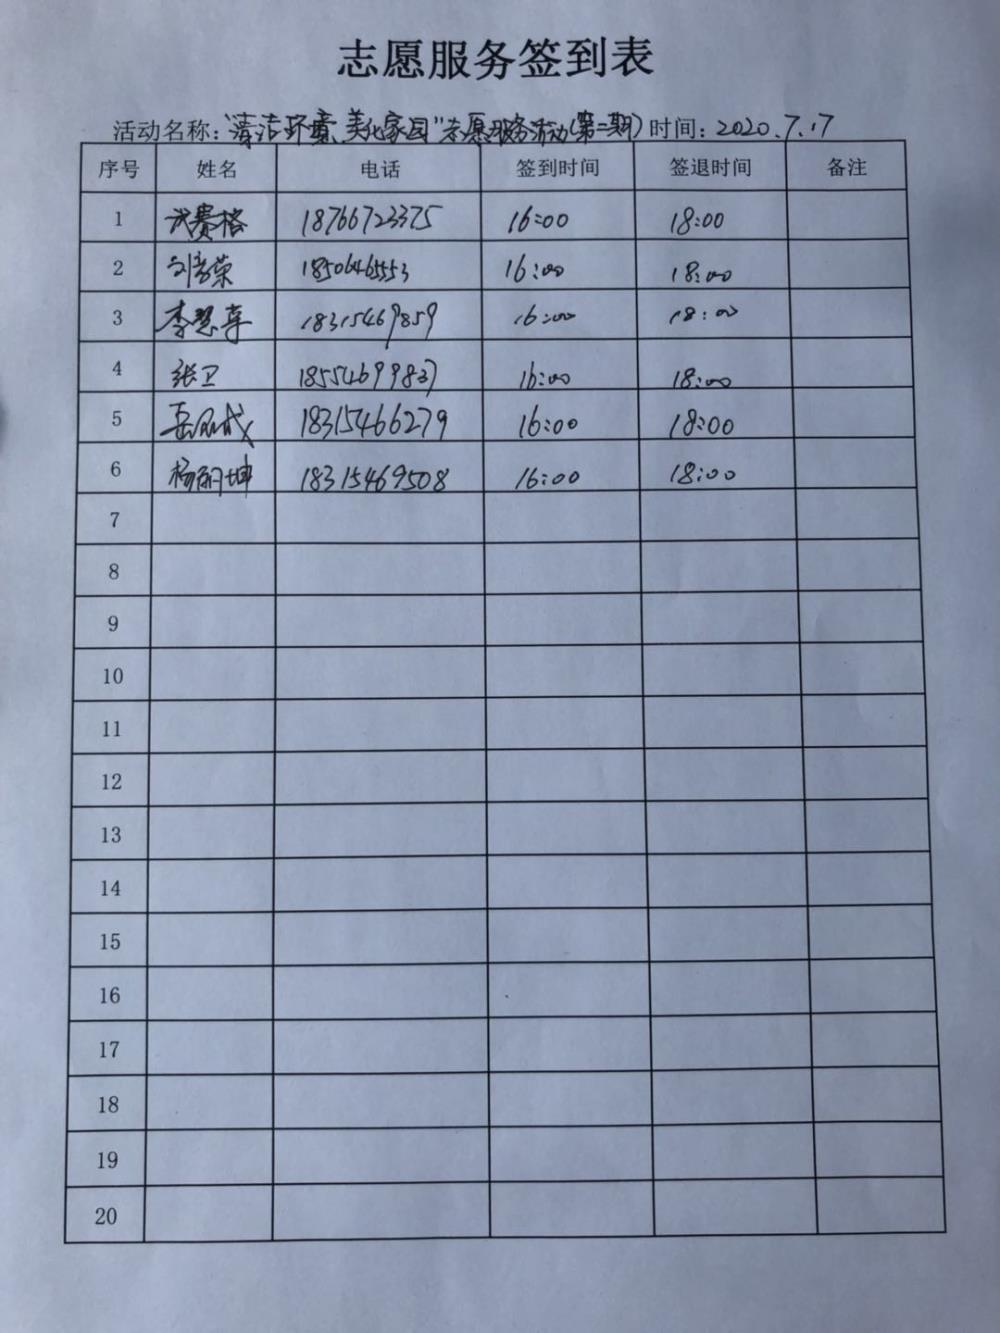 志愿服务签到表
活动名称：“清洁环境、美化家园”志愿服务活动(第二期) 时间：2020.7.17
序号 姓名 电话 签到时间 签退时间 备注
1 武赛格 18766723375 16:00 18:00
2 荣 18506465553 16:00 18:00
3 李慧 18315469859 16:00 18:00
4 张卫 18554699837 16:00 18:00
5 岳 成 18315466279 16:00 18:00
6 杨丽坤 18315469508 16:00 18:00
7
8
9
10
11
12
13
14
15
16
17
18
19
20